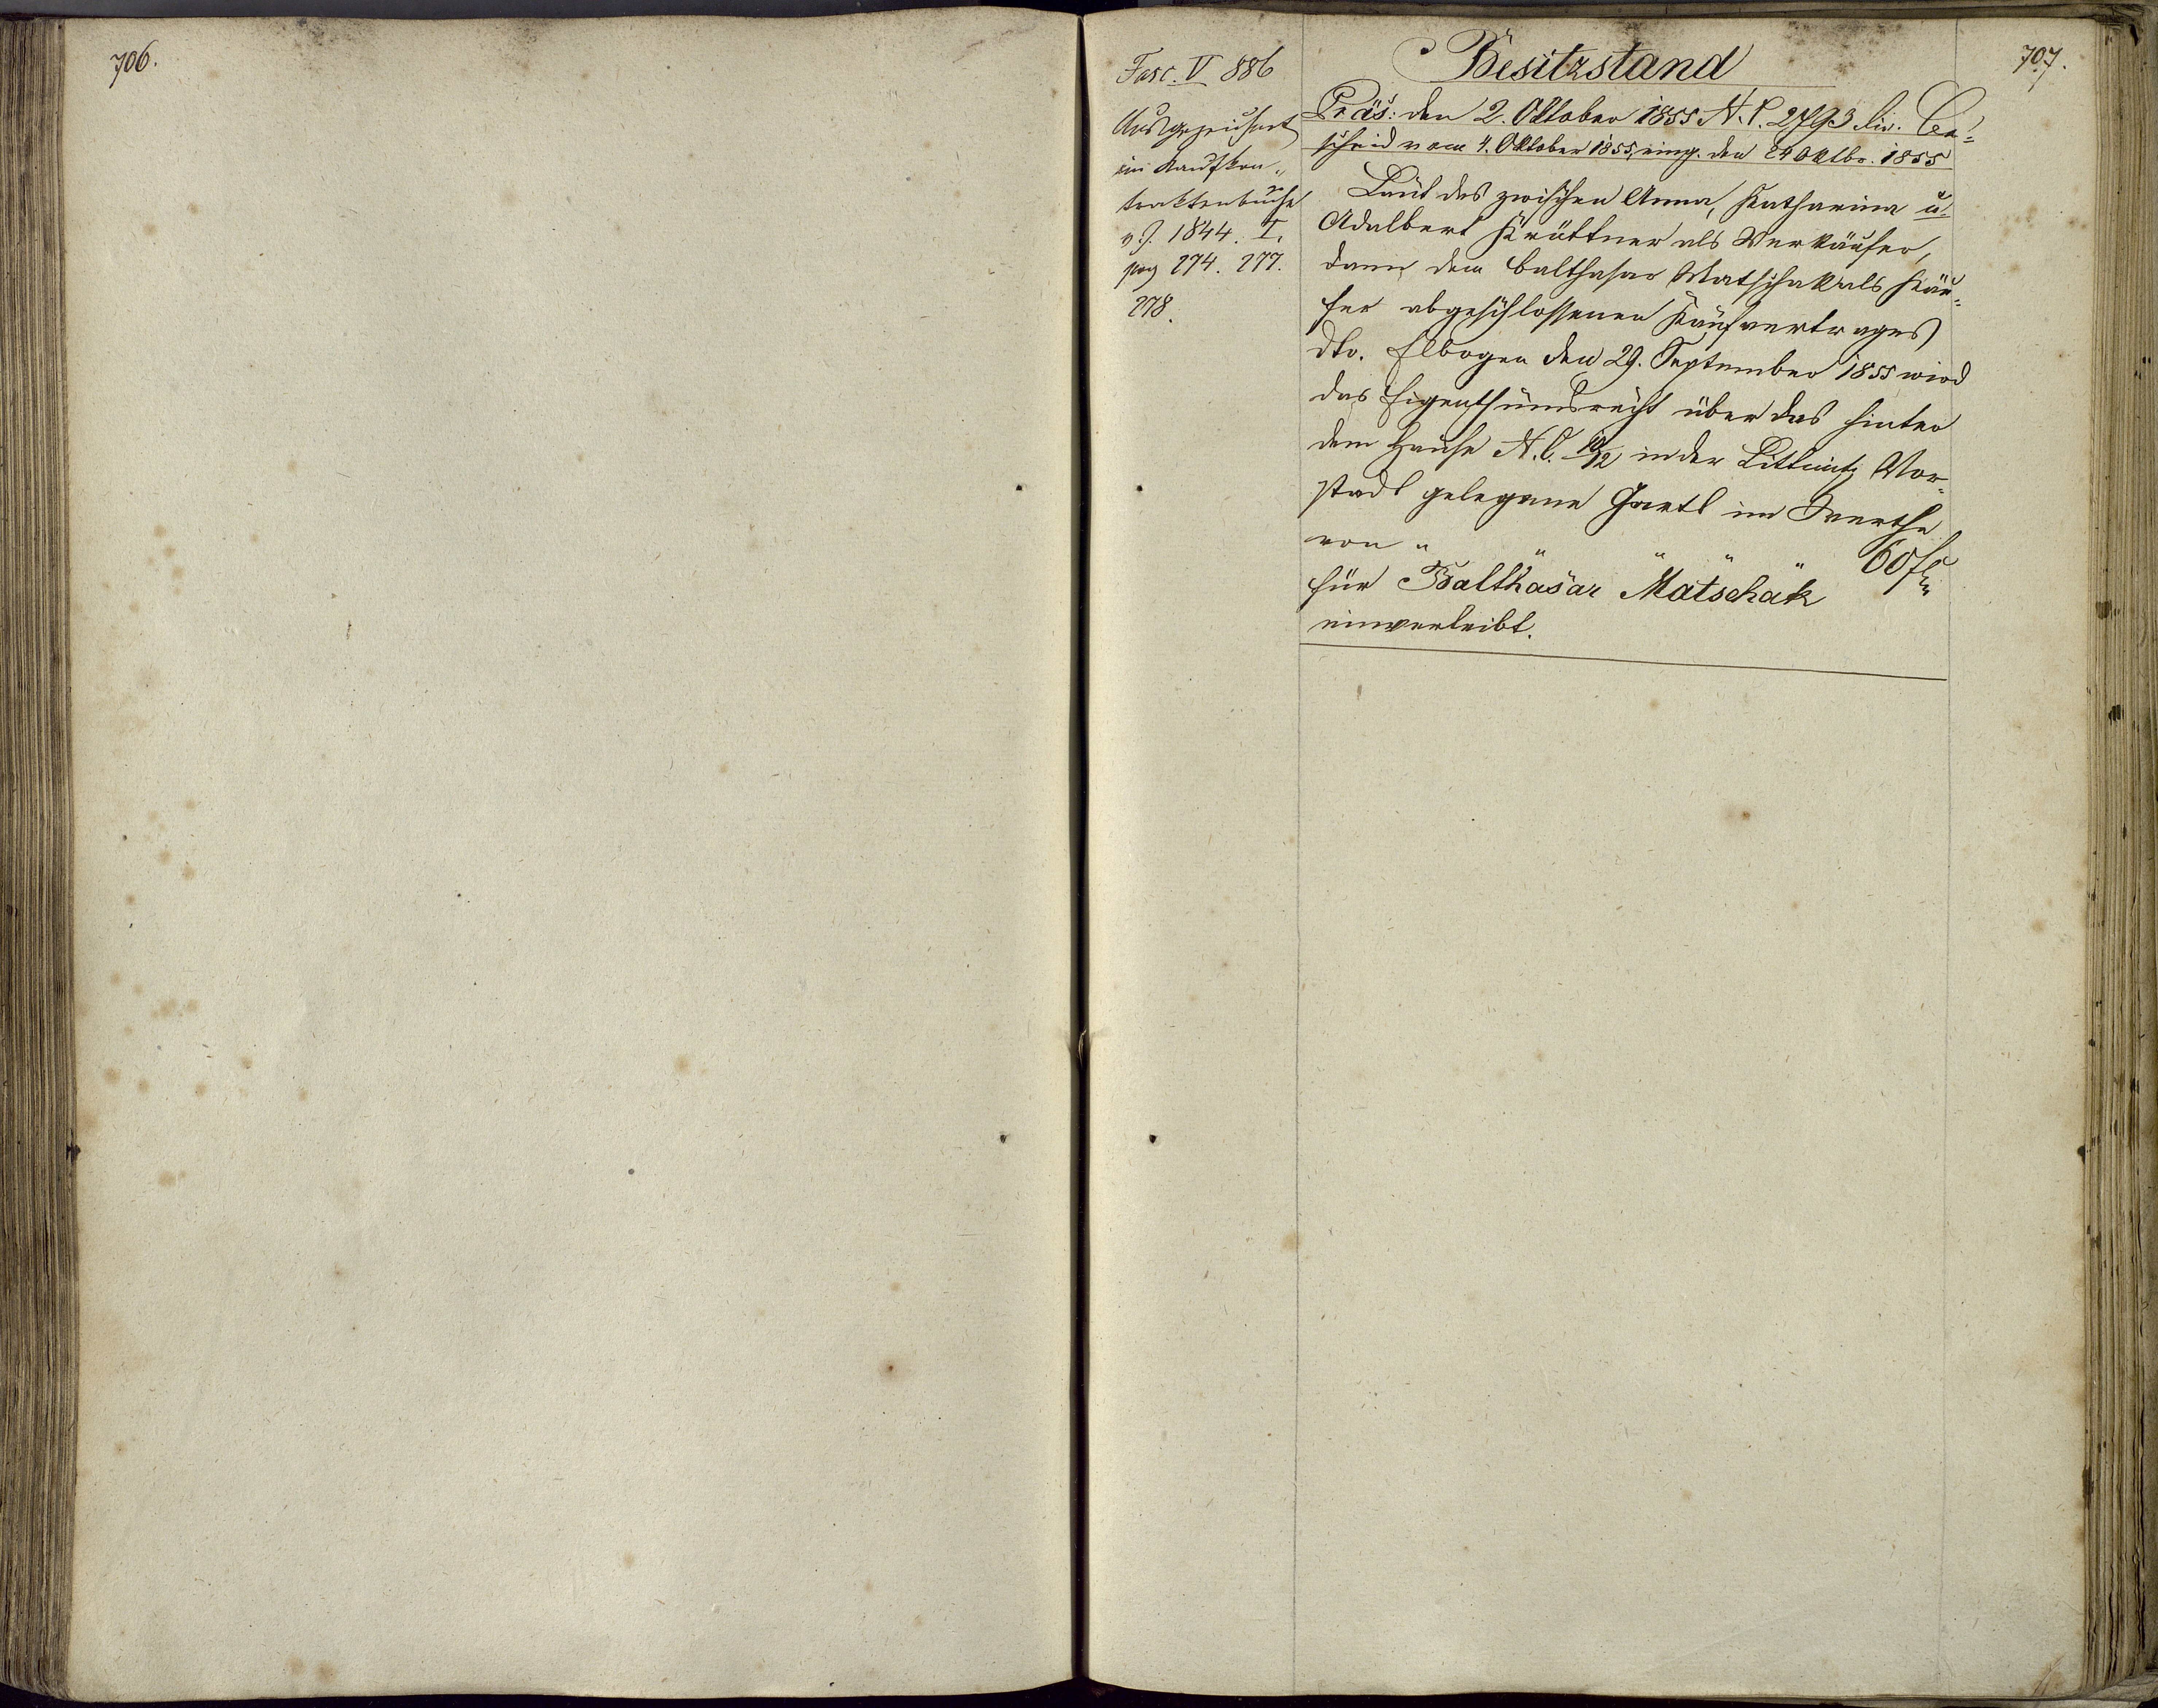 706.
Fasc. V 886
Ausgezeichnet
im Kaufkon„
traktenbuche
v. J. 1844. I.
pag 274. 277.
278.
Besitzstand
707.
Präs: den 2. Oktober 1855 N. E. 2793 civ. Be=
scheid vom 4. Oktober 1855, eing. den 24 Oktbr. 1855
Laut des zwischen Anna, Katharina u.
Adalbert Krüttner als Verkäufer,
dann dem Balthasar Matschak als Käu=
fer abgeschlossenen Kaufvertrages
dto. Elbogen den 29. September 1855 wird
das Eigenthumsrecht über das hinter
dem Hause N. C. in der Vor=
stadt gelegene Gartl im Werthe
von " " " " " 60 f
für Balthasar Matschak
einverleibt.